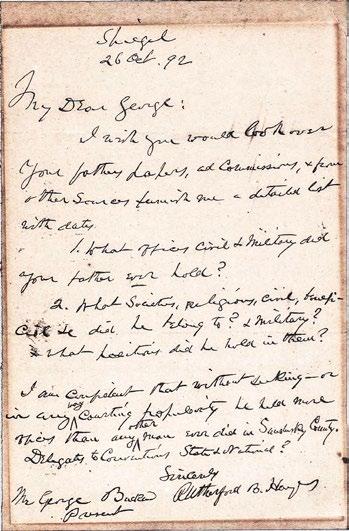 Spiegel
26 Oct. 92
My Dear George:
I wish you would look over
Your fathers papers, ad Commissions, & from
other Sources furnish me a detailed list
with dates.
1. What offices Civil & Military did
your father ever hold?
2. What Societies, religious, civil, benefi-
did he belong to? & Military?
& what positions did he hold in them?
I am Confident that without seeking—or
in any way Courting popularity he held more
offices than any other man ever did in Sandusky County.
Delegate to Conventions State & National?
Sincerely
Rutherford B. Hayes
Mr George Buckland
Present